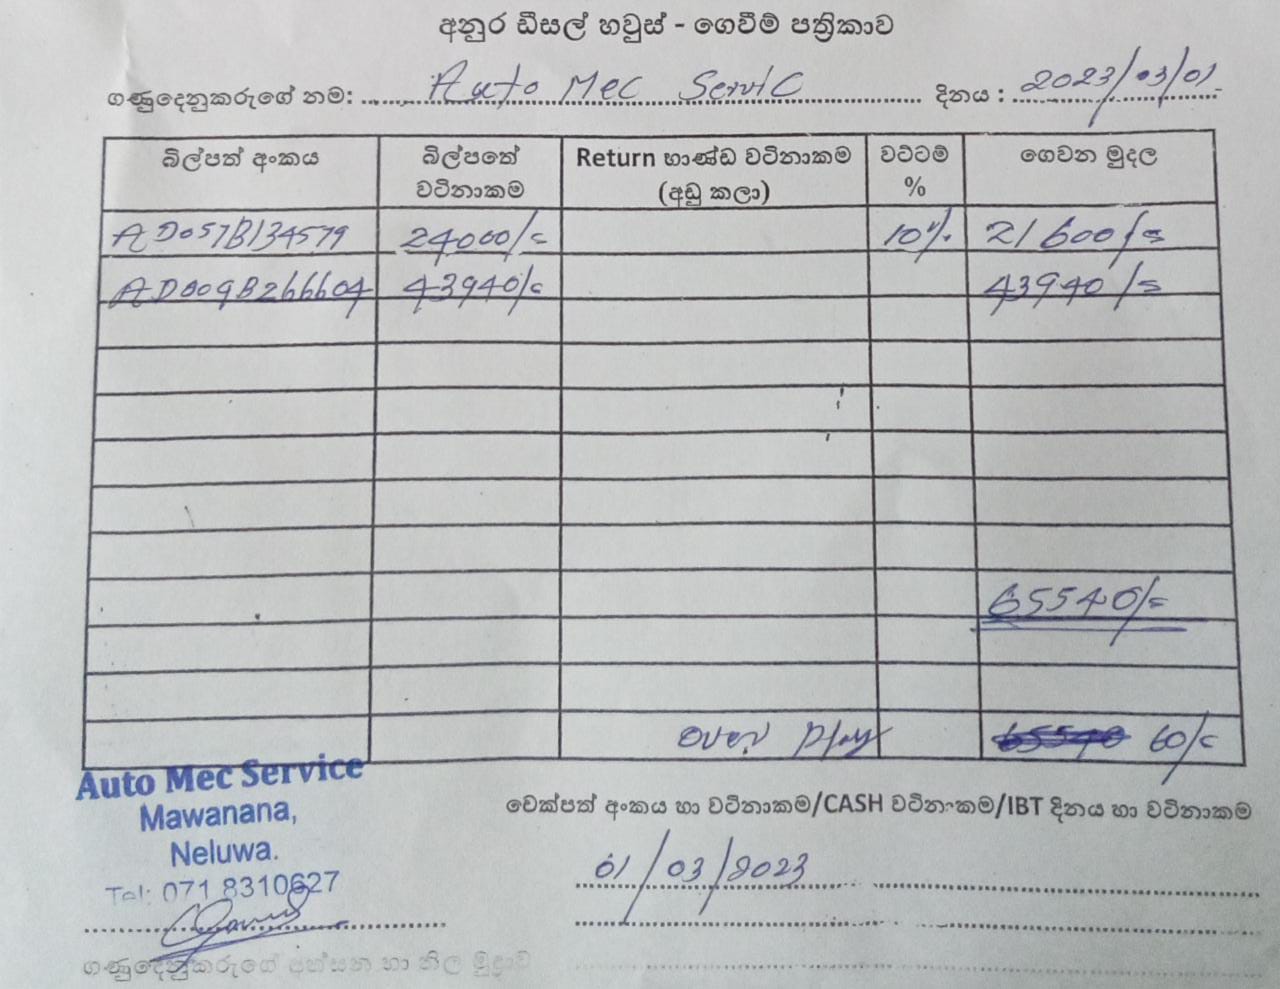 අනුර ඩීසල් හවුස් - ගෙවීම් පත්‍රිකාව
ගණුදෙනුකරුගේ නම: Auto Mec Servic දිනය : 2023/03/01
බිල්පත් අංකය බිල්පතේ වටිනාකම Return භාණ්ඩ වටිනාකම (අඩු කලා) වට්ටම් % ගෙවන මුදල
AD057B134579 24000/= 10% 21600/=
AD009B266604 43940/= 43940/=
65540/=
Over play 60/=
Auto Mec Service
Mawanana,
Neluwa.
Tel: 071 8310627
චෙක්පත් අංකය හා වටිනාකම/CASH වටිනාකම/IBT දිනය හා වටිනාකම
01/03/2023
ගණුදෙනුකරුගේ අත්සන හා නිල මුද්‍රාව